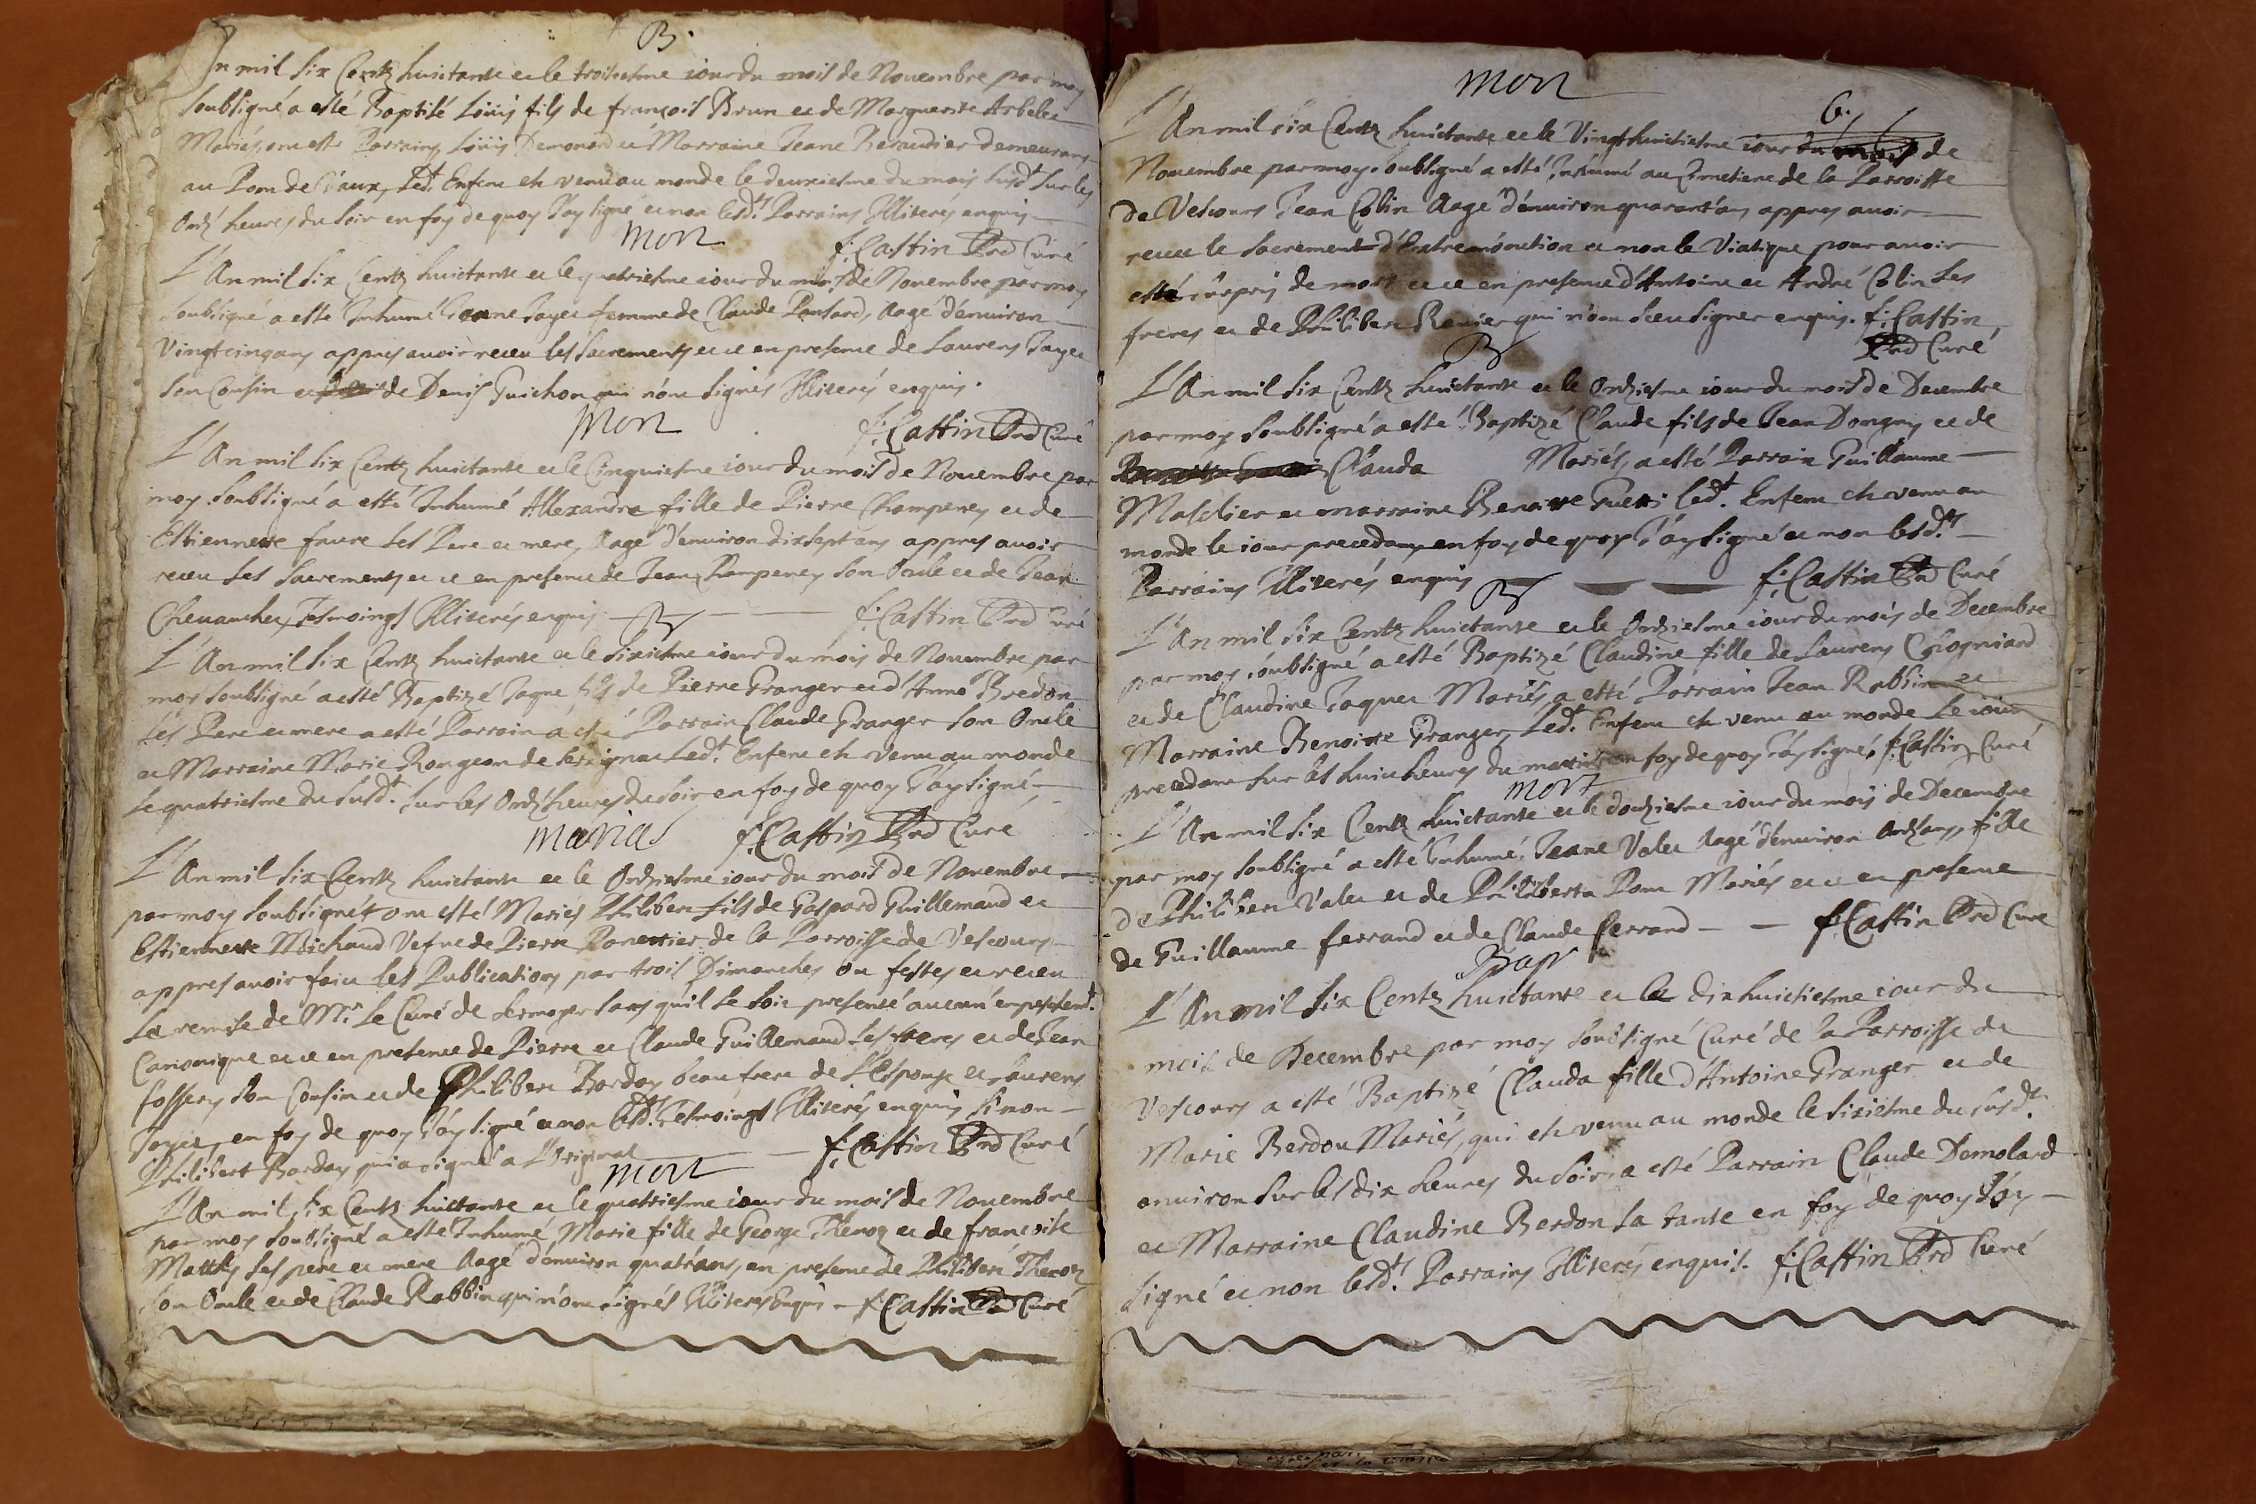 B.
An mil six Centz huictante et le troisiesme iour du mois de Nouembre par moy
soubsigné a esté Baptisé Loüis fils de françois Brun et de Marguerite
Mariés, ont esté Parrains Loüis Demonard et Marraine Jeane demeurans
au Pom de Vaux, Led.t Enfent est venu au monde le deuxiesme du mois susd.t sur les
Ordz' heures du soir en foy de quoy J'ay signé et non lesd.ts Parrains Illiterés enquis
mort
f. Castin Prd Curé
L'An mil six Centz huictante et le quatriesme iour du mois de Nouembre par moy
soubsigné a esté Inhumé Jeane Jayet femme de Claude Ponsard, Aagé d'enuiron
Vingtcinq ans appres auoir receu les Sacrements et ce en presence de Laurens Jayet
son Cousin et de Denis Guichon qui n'ont signés Illiterés enquis.
mort
f. Castin Prd Curé
L'An mil six Centz huictante et le Cinquiesme iour du mois de Nouembre par
moy soubsigné a esté Inhumé Allexandre fille de Pierre Champeney et de
Estiennette faure ses Pere et mere, Aagé d'enuiron dixsept ans appres auoir
receu ses Sacrements et ce en presence de Jean Champeney son Oncle et de Jean
Cheuancher, Tesmoings Illiterés enquis
f. Castin Prd Curé
B
L'An mil six Centz huictante et le sixiesme iour du mois de Nouembre par
moy soubsigné a esté Baptizé Jaque fils de Pierre Granger et d'Anne Bredon
ses Pere et mere a esté Parrain a esté Parrain Claude Granger son Oncle
et Marraine Marie Rongeon de Led.t Enfent est venu au monde
le quatriesme du susd.t sur les Ordz' heures du soir en foy de quoy J'ay signé
maria
f. Castin Prd Curé
L'An mil six Centz huictante et le Ordziesme iour du mois de Nouembre
par moy soubsigné ont esté Mariés Philibert fils de Gaspard Guillemaud et
Estiennette Michaud Vefue de Pierre de la Parroisse de Vescours
appres auoir faict les Publications par trois Dimanches ou festes et receu
La remise de M.r Le Curé de Sermoyer sans qu'il se soit presenté aucun empeschem.t
Canonique et ce en presence de Pierre et Claude Guillemaud ses freres et de Jean
son Cousin et de Philibert Borday beaufrere de l'Espouse et Laurens
Jayet, en foy de quoy J'ay signé et non lesd.ts Tesmoings Illiterés enquis sinon
Philibert Borday qui a signé a L'Original
f. Castin Prd Curé
mort
L'An mil six Centz huictante et le quatriesme iour du mois de Nouembre
par moy soubsigné a esté Inhumé Marie fille de George Theuoz et de francoise
Matthy ses pere et mere Aagé d'enuiron quatr'ans en presence de Philibert Theuoz
son Oncle et de Claude Robbin qui n'ont signés Illiterés Enquis f. Castin Prd Curé
mort
6.
L'An mil six Centz huictante et le Vingthuictiesme iour du mois de
Nouembre par moy soubsigné a esté Inhumé au Cimetiere de la Parroisse
de Vescours Jean Colin Aagé d'enuiron quarant'ans appres auoir
receu le Sacrement d'Extremonction et non le Viatique pour auoir
esté surpris de mort et ce en presence d'Antoine et André Colin ses
freres et de Philibert Renier qui n'ont sceu signer enquis. f. Castin
Prd Curé
B
L'An mil six Centz huictante et le Ordziesme iour du mois de Decembre
par moy soubsigné a esté Baptizé Claude fils de Jean Dongny et de
Clauda Mariés, a esté Parrain Guillaume
Masclier et marraine Benoitte Guerri led.t Enfent est venu au
monde le iour precedant, en foy de quoy J'ay signé et non lesd.ts
Parrains Illiterés enquis f. Castin Prd Curé
B
L'An mil six Centz huictante et le Ordziesme iour du mois de Decembre
par moy soubsigné a esté Baptizé Claudine fille de Laurens Chogniard
et de Claudine Jaquet Mariés, a esté Parrain Jean Robbin et
Marraine Benoitte Granger, Led.t Enfent est venu au monde Le iour
precedant sur les huict heures du matin en foy de quoy J'ay signé. f. Castin Curé
mort
L'An mil six Centz huictante et le douziesme iour du mois de Decembre
par moy soubsigné a esté Inhumé, Jeane Valet Aagé d'enuiron Ordz'ans, fille
de Philibert Valet et de Philiberte Pont Mariés et ce en presence
de Guillaume ferrand et de Claude ferrand f. Castin Prd Curé
Bap
L'An mil six Centz huictante et le dixhuictiesme iour du
mois de Decembre par moy soubsigné Curé de la Parroisse de
Vescours a esté Baptizé Clauda fille d'Antoine Granger et de
Marie Berdon Mariés, qui est venu au monde le sixiesme du susd.t
enuiron sur les dix heures du soir, a esté Parrain Claude Demolard
et Marraine Claudine Berdon sa tante en foy de quoy J'ay
signé et non lesd.ts Parrains Illiterés enquis. f. Castin Prd Curé